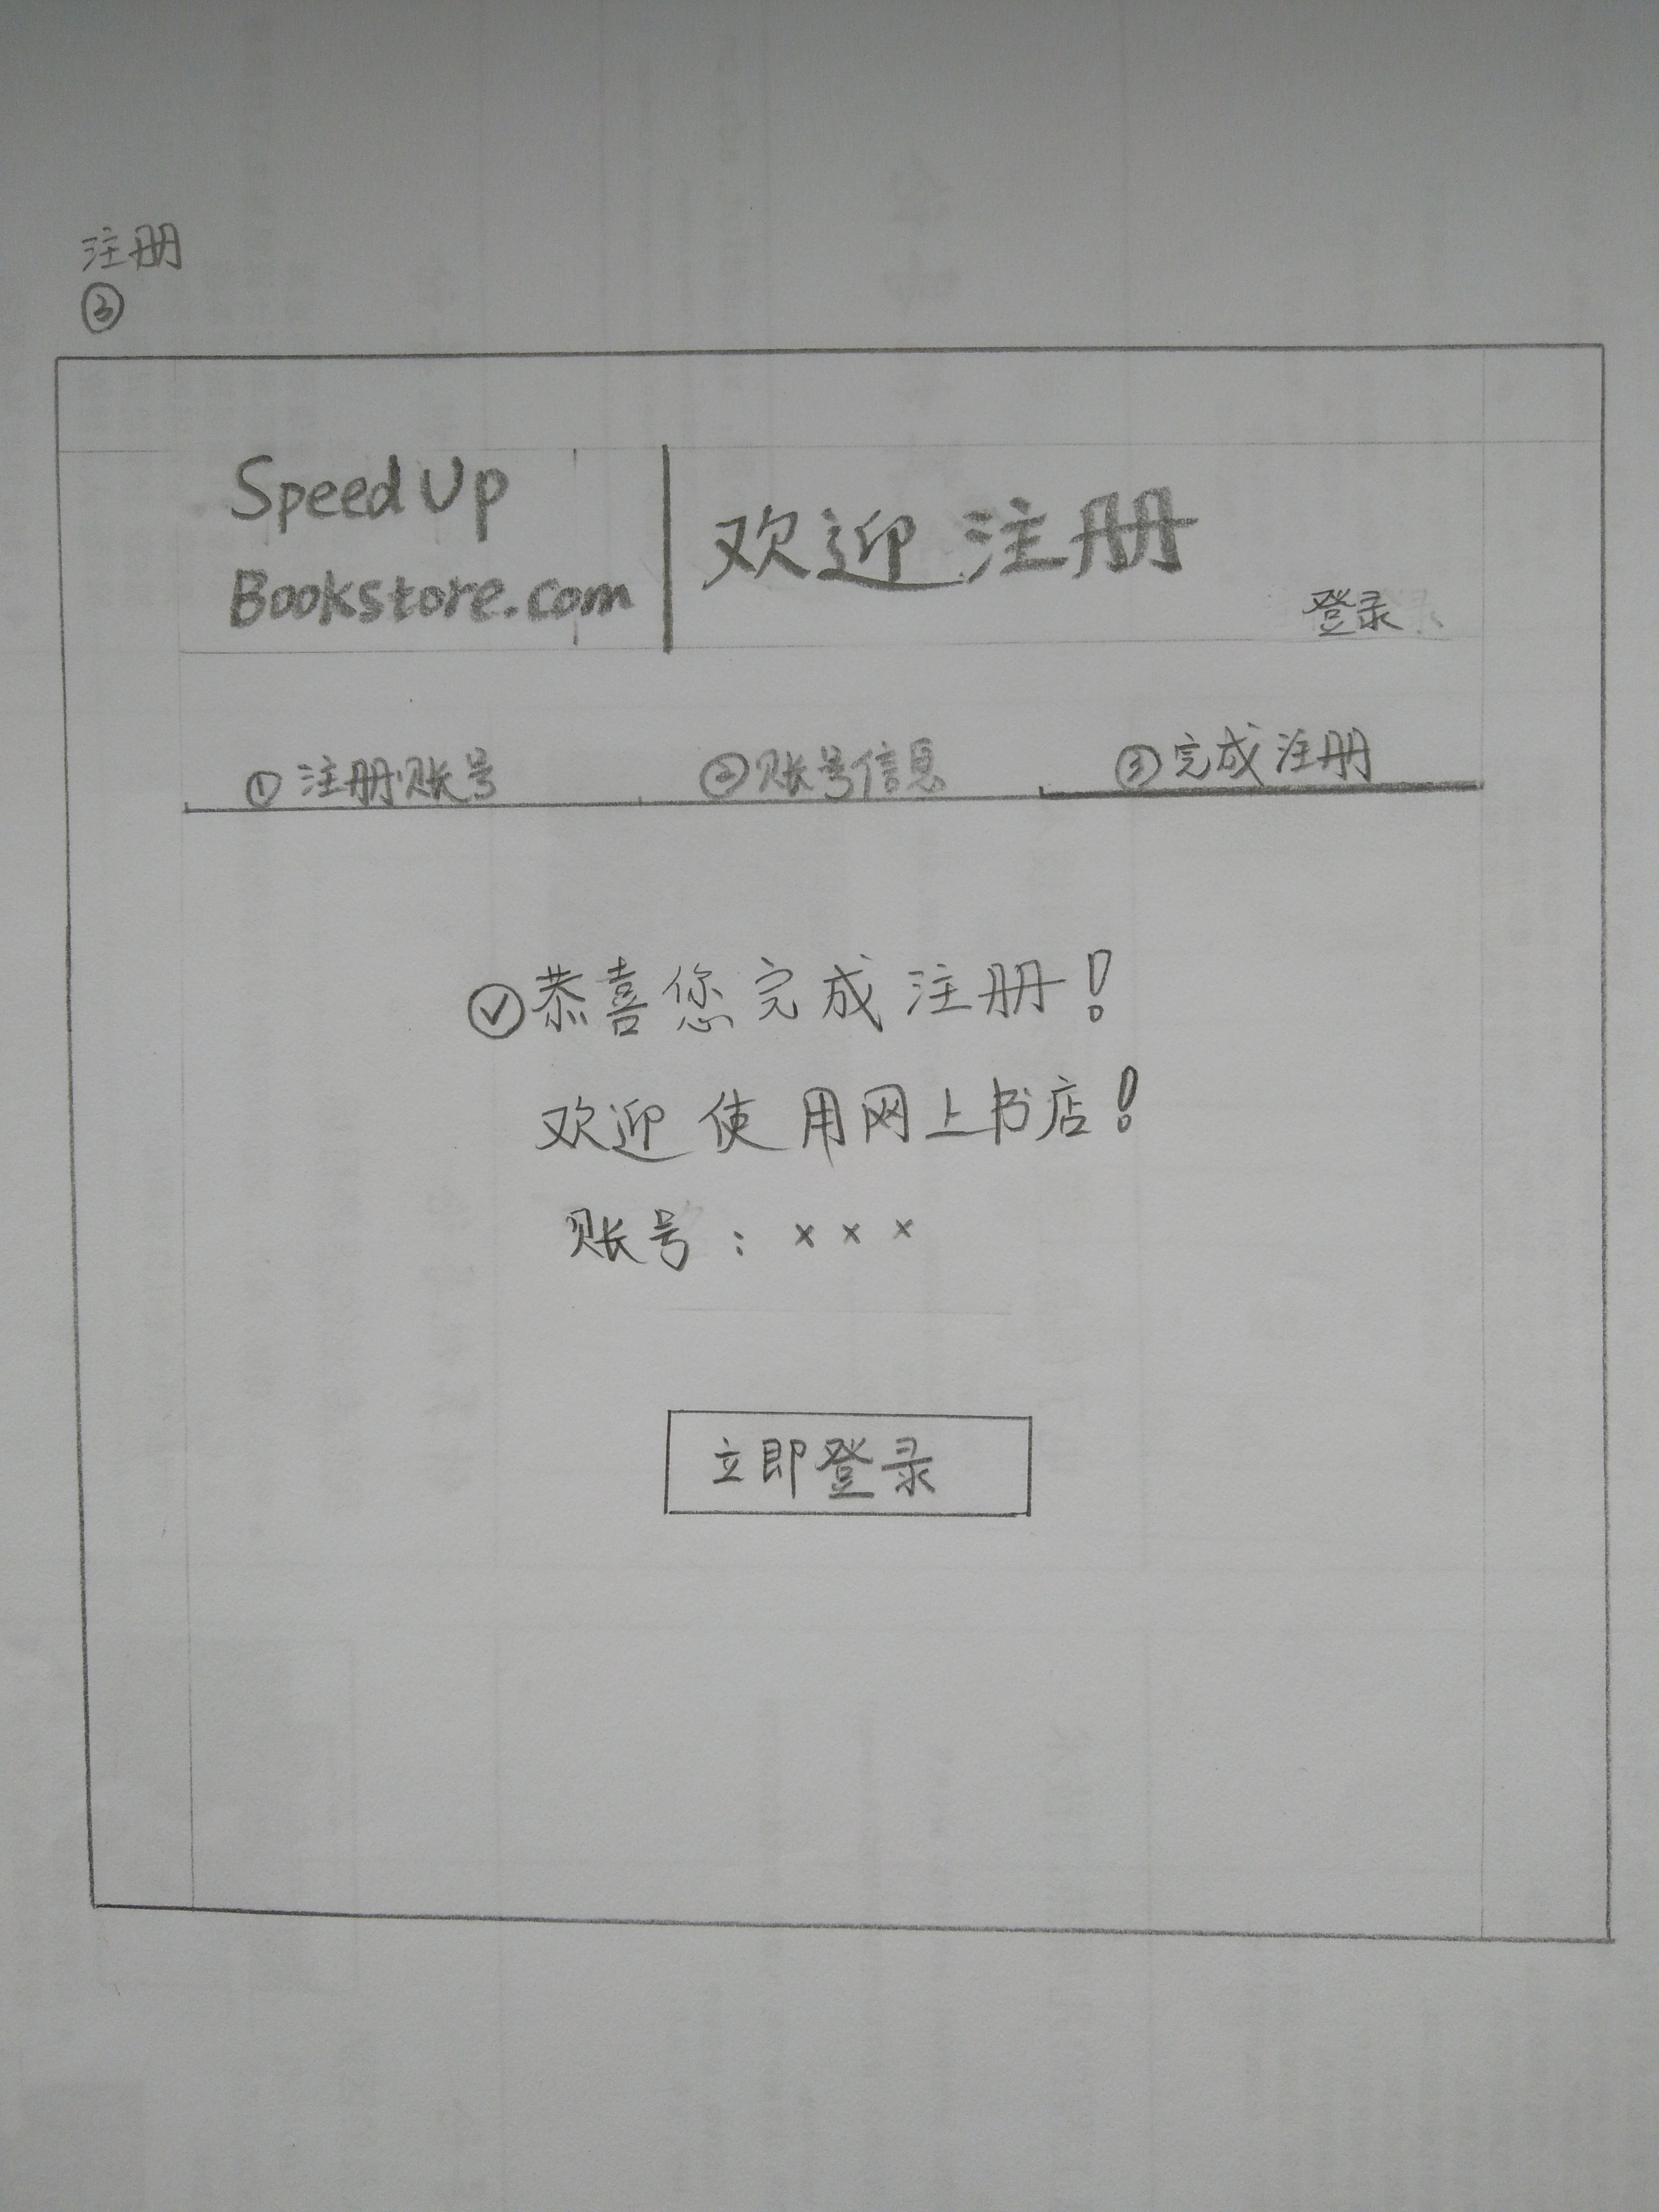 注册
③
Speed Up
Bookstore.com
欢迎注册
登录
①注册账号 ②账号信息 ③完成注册
恭喜您完成注册!
欢迎使用网上书店!
账号:×××
立即登录